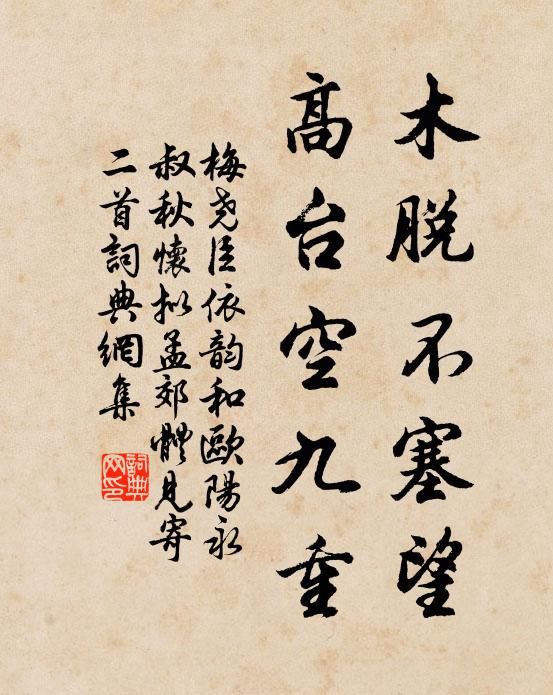 木脱不塞望
高台空九重
梅尧臣依韵和歐陽永
叔秋懷拟孟郊體見寄
二首詞典網集
詞典网印